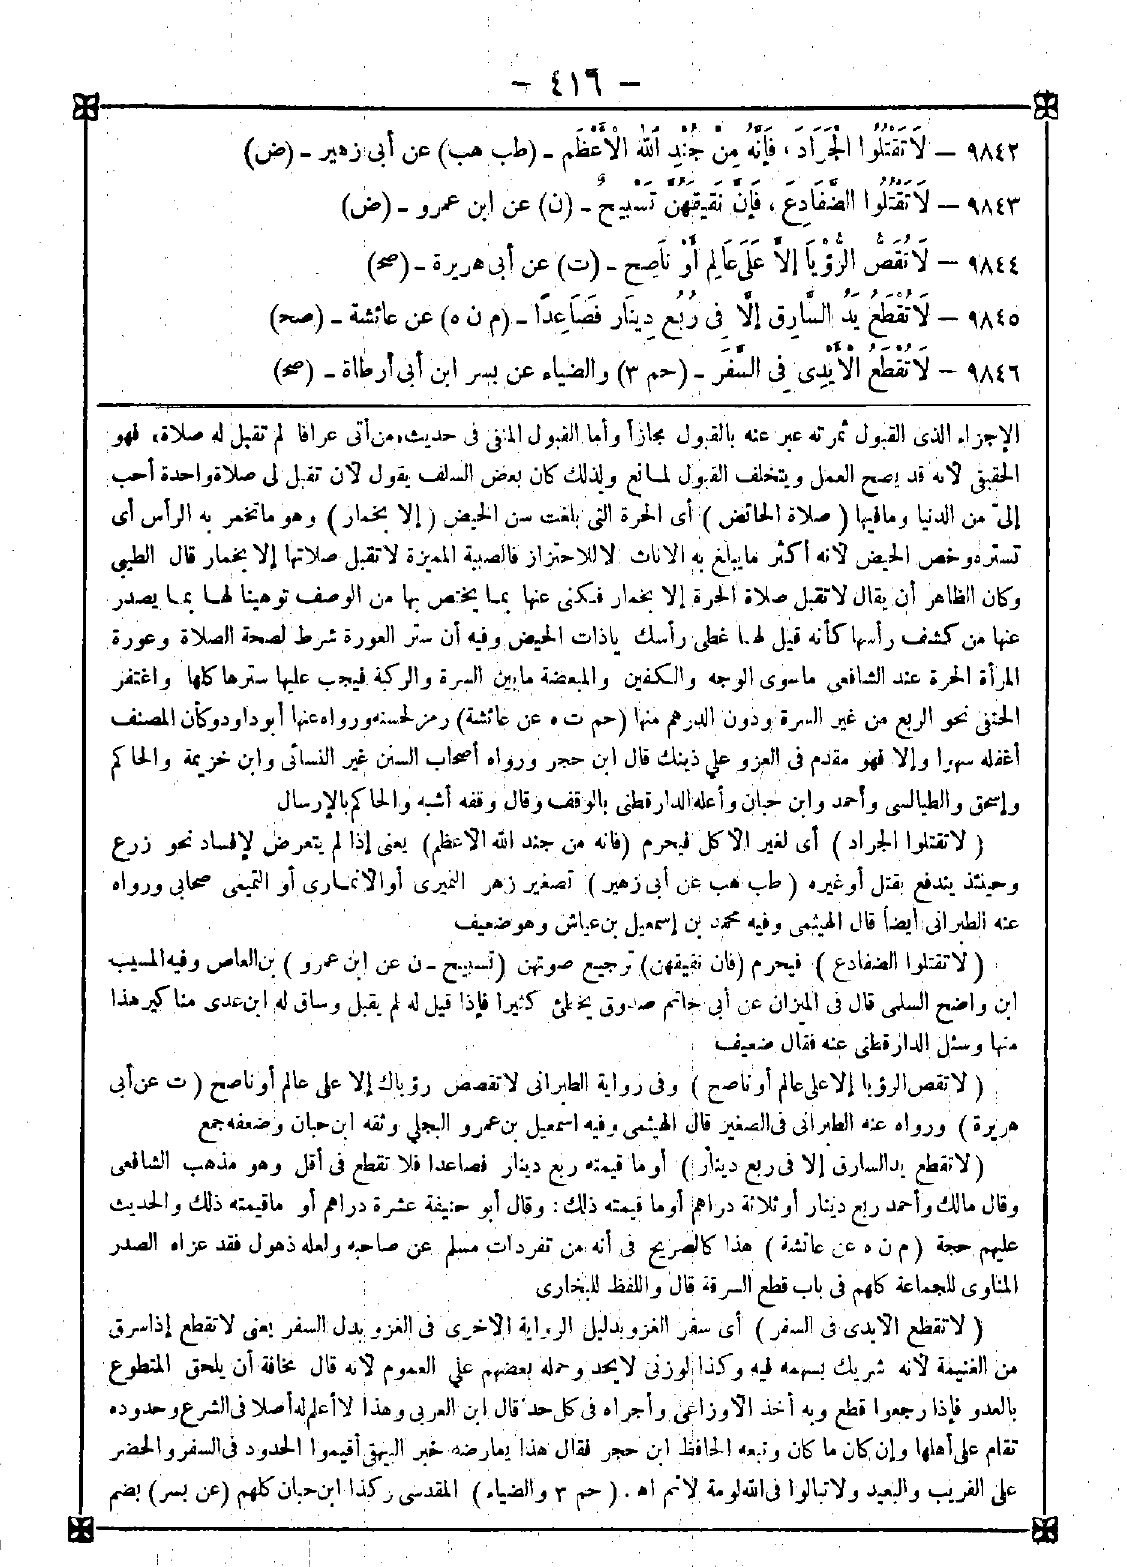 - ٤١٦ -
٩٨٤٢ — لَا تَقْتُلُوا الْجَرَادَ ، فَإِنَّهُ مِنْ جُنْدِ اللهِ الْأَعْظَمِ - (طب هب) عن أبى زهير - (ض)
٩٨٤٣ — لَا تَقْتُلُوا الضَّفَادِعَ ، فَإِنَّ نَقِيقَهُنَّ تَسْبِيحٌ - (ن) عن ابن عمرو - (ض)
٩٨٤٤ — لَا تُقَصُّ الرُّؤْيَا إِلَّا عَلَى عَالِمٍ أَوْ نَاصِحٍ - (ت) عن أبى هريرة - (صح)
٩٨٤٥ — لَا تُقْطَعُ يَدُ السَّارِقِ إِلَّا فِى رُبُعِ دِينَارٍ فَصَاعِدًا - (م ن ه) عن عائشة - (صح)
٩٨٤٦ — لَا تُقْطَعُ الْأَيْدِى فِى السَّفَرِ - (حم ٣) والضياء عن بسر ابن أبى أرطاة - (صح)
الإجزاء الذى القبول ثمرته عبر عنه بالقبول مجازاً وأما القبول المنفى فى حديث، من أتى عرافا لم تقبل له صلاة، فهو
الحقيقى لأنه قد يصح العمل ويتخلف القبول لمانع ولذلك كان بعض السلف يقول لأن تقبل لى صلاة واحدة أحب
إلىّ من الدنيا ومافيها ( صلاة الحائض ) أى الحرة التى بلغت سن الحيض ( إلا بخمار ) وهو ماتخمر به الرأس أى
تستره وخص الحيض لأنه أكثر مايبلغ به الاناث لا للاحتراز فالصبية المميزة لاتقبل صلاتها إلا بخمار قال الطيبى
وكان الظاهر أن يقال لاتقبل صلاة الحرة إلا بخمار فكنى عنها بما يختص بها من الوصف توهينا لها بما يصدر
عنها من كشف رأسها كأنه قيل لها غطى رأسك ياذات الحيض وفيه أن ستر العورة شرط لصحة الصلاة وعورة
المرأة الحرة عند الشافعى ماسوى الوجه والكفين والمبعضة مابين السرة والركبة فيجب عليها سترها كلها واغتفر
الحنفى نحو الربع من غير السرة ودون الدرهم منها (حم ت ه عن عائشة) رمز لحسنه ورواه عنها أبو داود وكأن المصنف
أغفله سهوا وإلا فهو مقدم فى العزو على ذينك قال ابن حجر ورواه أصحاب السنن غير النسائى وابن خزيمة والحاكم
وإسحق والطيالسى وأحمد وابن حبان وأعله الدارقطنى بالوقف وقال وقفه أشبه والحاكم بالإرسال
( لاتقتلوا الجراد ) أى لغير الأكل فيحرم (فانه من جند الله الأعظم) يعنى إذا لم يتعرض لإفساد نحو زرع
وحينئذ يندفع بقتل أوغيره ( طب هب عن أبى زهير ) تصغير زهر النميرى أوالأنمارى أو التميمى صحابى ورواه
عنه الطبرانى أيضاً قال الهيثمى وفيه محمد بن إسمعيل بن عياش وهو ضعيف
( لاتقتلوا الضفادع ) فيحرم (فان نقيقهن) ترجيع صوتهن (تسبيح - ن عن ابن عمرو ) بن العاص وفيه المسيب
ابن واضح السلمى قال فى الميزان عن أبى حاتم صدوق يخطئ كثيرا فإذا قيل له لم يقبل وساق له ابن عدى مناكير هذا
منها وسئل الدارقطنى عنه فقال ضعيف
( لاتقص الرؤيا إلا على عالم أو ناصح ) وفى رواية الطبرانى لاتقصص رؤياك إلا على عالم أو ناصح ( ت عن أبى
هريرة ) ورواه عنه الطبرانى فى الصغير قال الهيثمى وفيه اسمعيل بن عمرو البجلى وثقه ابن حبان وضعفه جمع
( لاتقطع يد السارق إلا فى ربع دينار ) أوما قيمته ربع دينار فصاعدا فلا تقطع فى أقل وهو مذهب الشافعى
وقال مالك وأحمد ربع دينار أو ثلاثة دراهم أوما قيمته ذلك : وقال أبو حنيفة عشرة دراهم أو ماقيمته ذلك والحديث
عليهم حجة ( م ن ه عن عائشة ) هذا كالصريح فى أنه من تفردات مسلم عن صاحبه ولعله ذهول فقد عزاه الصدر
المناوى للجماعة كلهم فى باب قطع السرقة قال واللفظ للبخارى
( لاتقطع الأيدى فى السفر ) أى سفر الغزو بدليل الرواية الأخرى فى الغزو بدل السفر يعنى لاتقطع إذا سرق
من الغنيمة لأنه شريك بسهمه فيه وكذا لوزنى لايحد وحمله بعضهم على العموم لأنه قال مخافة أن يلحق المتطوع
بالعدو فإذا رجعوا قطع وبه أخذ الأوزاعى وأجراه فى كل حد قال ابن العربى وهذا لا أعلم له أصلا فى الشرع وحدوده
تقام على أهلها وإن كان ما كان وتبعه الحافظ ابن حجر فقال هذا يعارضه خبر البيهقى أقيموا الحدود فى السفر والحضر
على القريب والبعيد ولاتبالوا فى الله لومة لائم اه . ( حم ٣ والضياء ) المقدسى وكذا ابن حبان كلهم (عن بسر) بضم